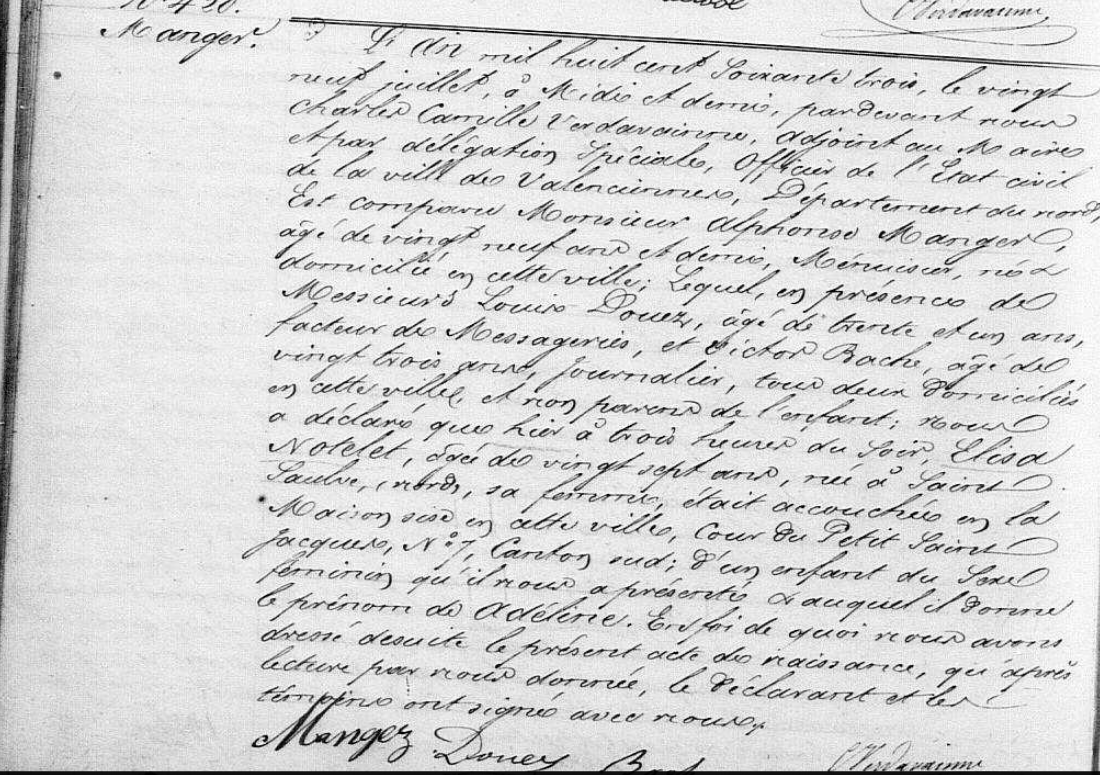 N° 430.
Verdavainne
Manger.
L'an mil huit cent Soixante trois, le vingt
neuf juillet, à Midi et demi, pardevant nous
Charles Camille Verdavainne, adjoint au Maire
et par délégation Spéciale, Officier de l'Etat civil
de la ville de Valenciennes, Département du nord,
Est comparu Monsieur Alphonse Manger,
âgé de vingt neuf ans et demi, Menuisier, né &
domicilié en cette ville; Lequel, en présence de
Messieurs Louis Douez, âgé de trente et un ans,
facteur de Messageries, et Victor Bache, âgé de
vingt trois ans, Journalier, tous deux domiciliés
en cette ville, et non parens de l'enfant; nous
a déclaré que hier à trois heures du Soir, Elisa
Notelet, âgée de vingt sept ans, née à Saint
Saulve, (nord), sa femme, était accouchée en la
Maison sise en cette ville, Cour du Petit Saint
Jacques, N° 7, Canton sud; d'un enfant du Sexe
féminin qu'il nous a présenté & auquel il donne
le prénom de Adéline. En foi de quoi nous avons
dressé desuite le présent acte de naissance, qu'après
lecture par nous donnée, le déclarant et les
témoins ont signé avec nous.
Mangez Douez
CVerdavainne